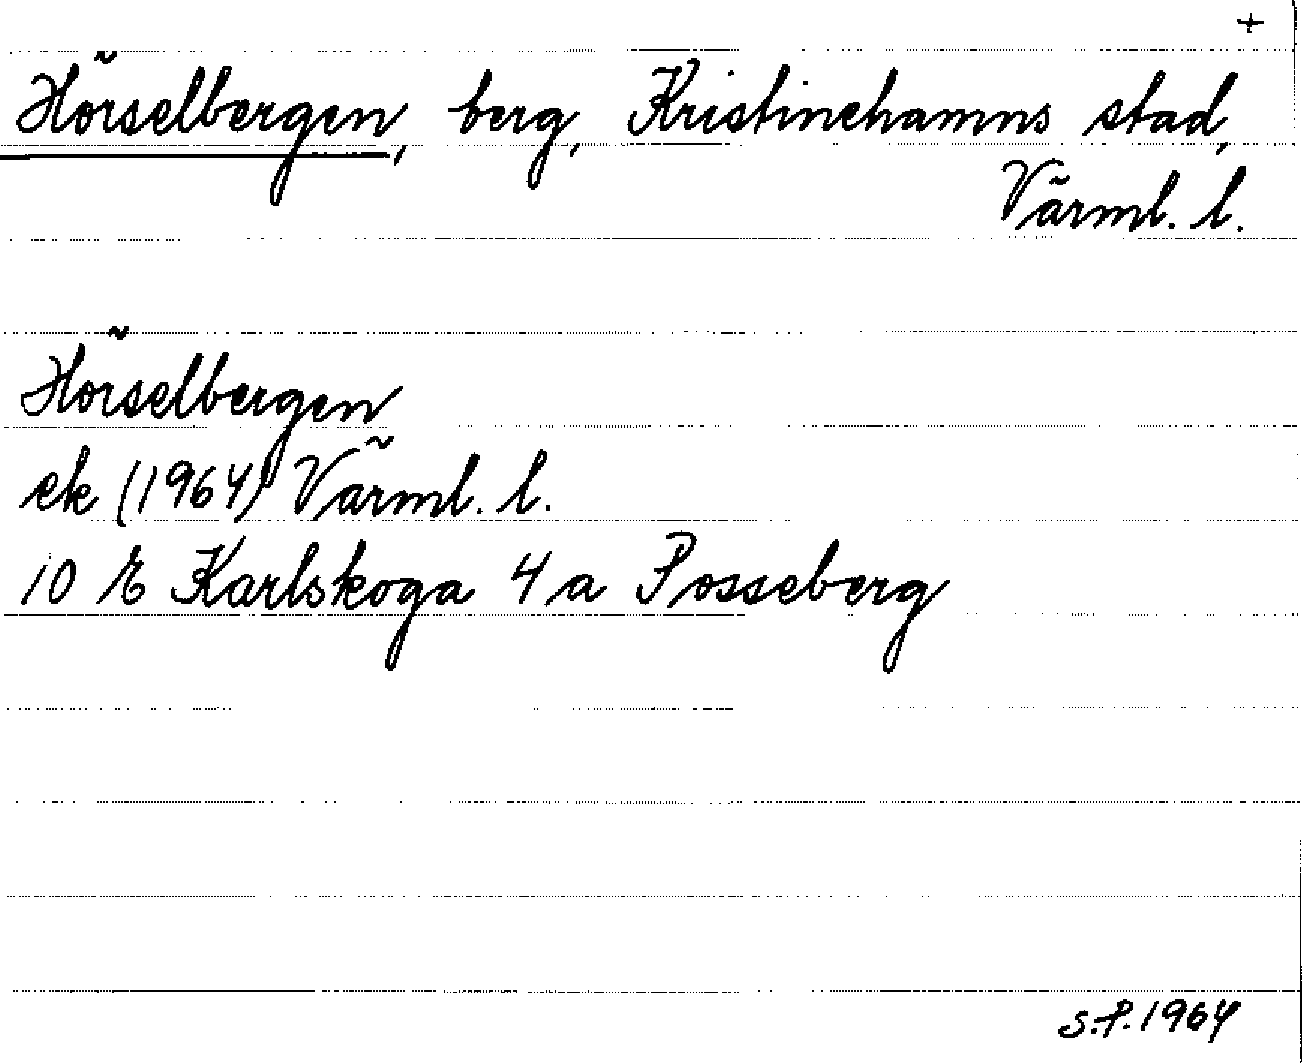 +
Hörselbergen, berg, Kristinehamns stad,
Värml. l.
Hörselbergen
ek (1964) Värml. l.
10 E Karlskoga 4 a Posseberg
s.f. 1964